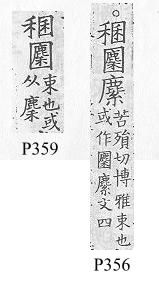 稛
束也或
从麇
P359
稛
苦殞切博雅束也
或作文四
P356